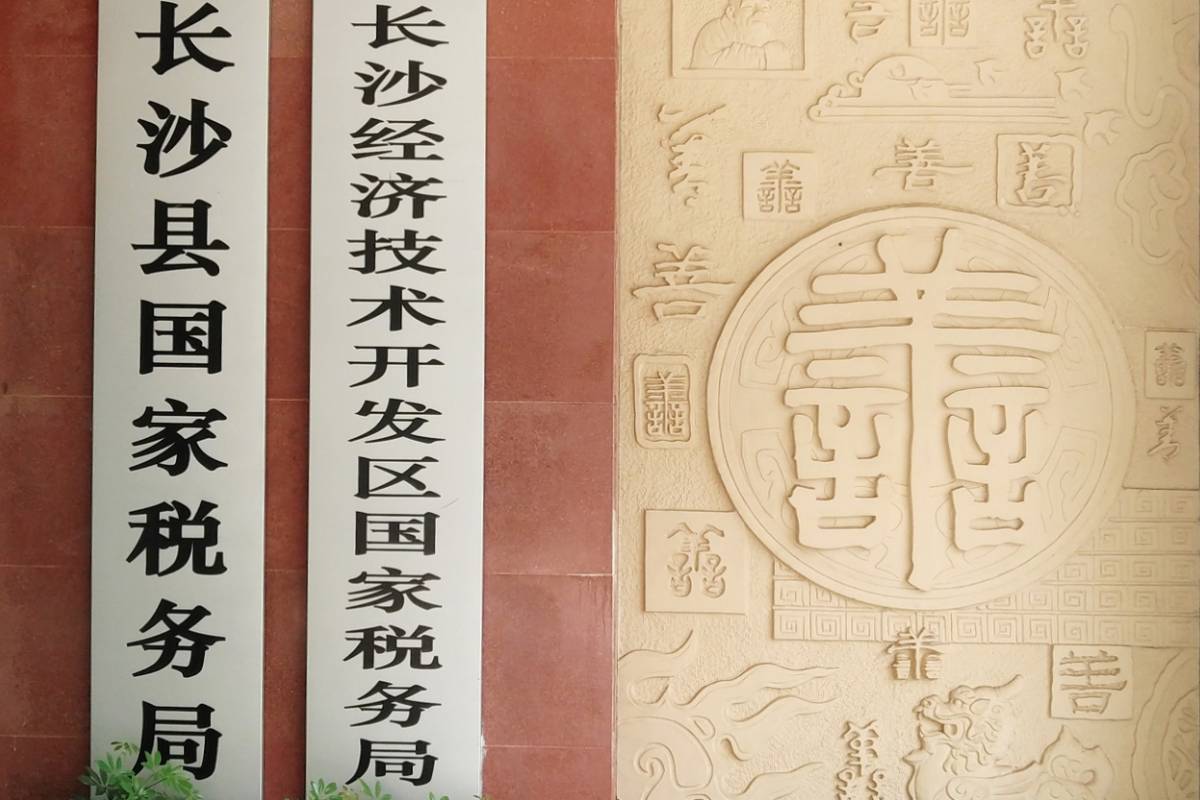 长沙县国家税务局
长沙经济技术开发区国家税务局
善
善
善
善
善
善
善
善
善
善